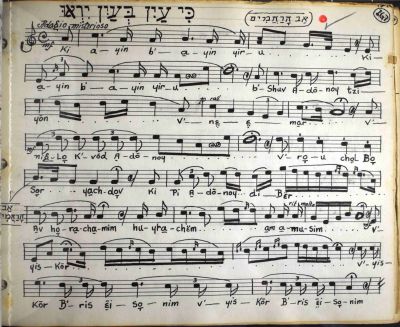 כי עין בעין יראו
Adagio misterioso
אב הרחמים
mf
Ki a-yin b'-a-yin yir-u Ki-
a-yin b'-a-yin yir-u b'-Shuv A-dō-noy tzi-
yōn v'- nē - ē - mar v'-
nig-Lo K'-vōd A-dō-noy v'-ro-u chol Bo
Sor yach-dov Ki Pi A-dō-noy di-BĒr
אב הרחמים
Av ho-ra-chamim hu y'ra-chēm am a-mu-Sim v'-
yis-Kōr v'-yis-
Kōr B'-ris ēi-So-nim v'-yis-Kōr B'-ris ēi-So-nim